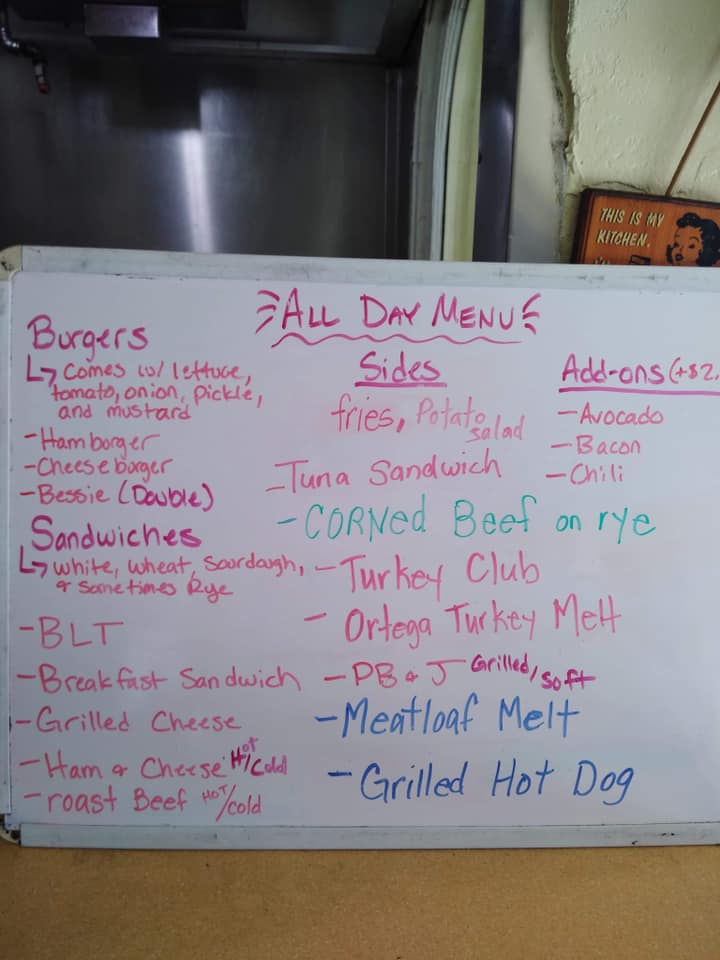 THIS IS MY
KITCHEN.
ALL DAY MENU
Burgers
Comes w/ lettuce,
tomato, onion, pickle,
and mustard
-Hamburger
-Cheeseburger
-Bessie (Double)
Sandwiches
white, wheat, Sourdough,
& Sometimes Rye
-BLT
-Breakfast Sandwich
-Grilled Cheese
-Ham & Cheese Hot/Cold
-roast Beef HOT/cold
Sides
fries, Potato
salad
-Tuna Sandwich
-CORNed Beef on rye
-Turkey Club
- Ortega Turkey Melt
-PB & J Grilled/Soft
-Meatloaf Melt
-Grilled Hot Dog
Add-ons (+$2.
-Avocado
-Bacon
-Chili